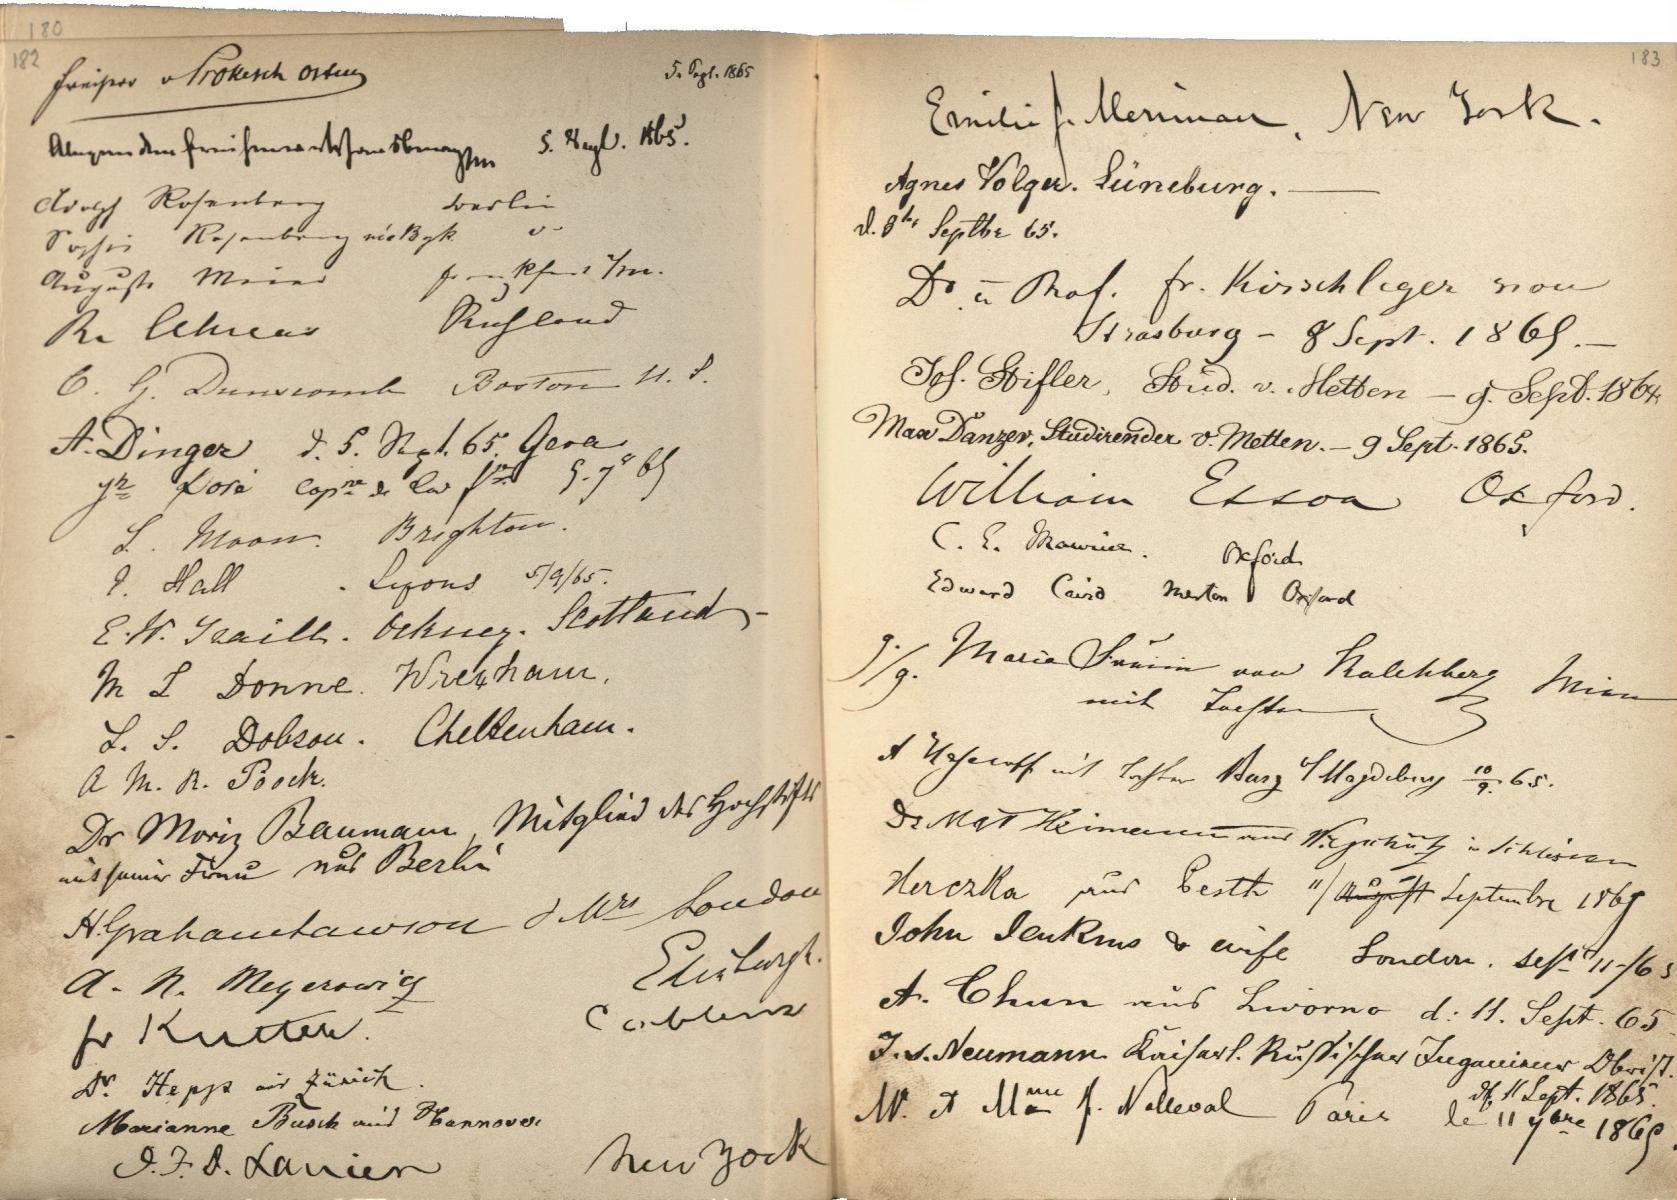 180
182
Freiherr v Prokesch Osten 5. Sept. 1865
5. Sept. 1865.
Adolph Rosenberg Berlin
Sophie Rosenberg
Auguste Meier Frankfurt a/m.
Rußland
C. G. Dunscomb Boston U. S.
A. Dinger d. 5. Sept. 65. Gera
L. Moon. Brighton.
J. Hall Lyons 5/9/65.
E. W. Traill. Orkney. Scotland
M L Donne. Wrexham.
L. S. Dobson. Cheltenham.
A M. R. Pook.
Dr Moriz Baumann, Mitglied des Hochstifts
mit seiner Frau aus Berlin
H. Graham Lawson & Mrs London
A. N. Meyerowitz Edinburgh.
fr Kutter. Coblenz
Dr. Hepp aus Zürich.
Marianne Busch aus Hannover.
J. F. D. Lanier New York
183
Emilie J. Merriman, New York.
Agnes Volger. Lüneburg.
d. 8te Septbr 65.
Dr. u Prof. fr. Kirschleger von
Strasburg - 8 Sept. 1865.-
Jos. Stifler, Stud. v. Metten - 9. Sept. 1864.
Max Danzer, Studirender v. Metten. - 9 Sept. 1865.
William Esson Oxford.
C. E. Maurice. Oxford
Edward Caird Merton Oxford
9./9. Maria von Kalchberg Wien
mit Tochter
mit Tochter Burg b/Magdeburg 10/9. 65.
Dr. Max Heimann aus in Schlesien
Herczka aus Pesth 11/ August Septembre 1865
John Jenkins & wife London. Sept 11-/65
A. Chun aus Livorno d: 11. Sept. 65
J. v. Neumann Kaiserl. Russischer Ingenieur Obrist.
d. 11 Sept. 1865.
M. et Mme J. Nelleval Paris le 11 7bre 1865.